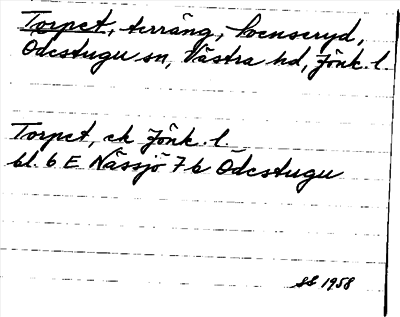 Torpet, terräng, Svenseryd,
Ödestugu sn, Västra hd, Jönk. l.
Torpet, ek Jönk. l.
bl. 6 E Nässjö 7 b Ödestugu
SS 1958